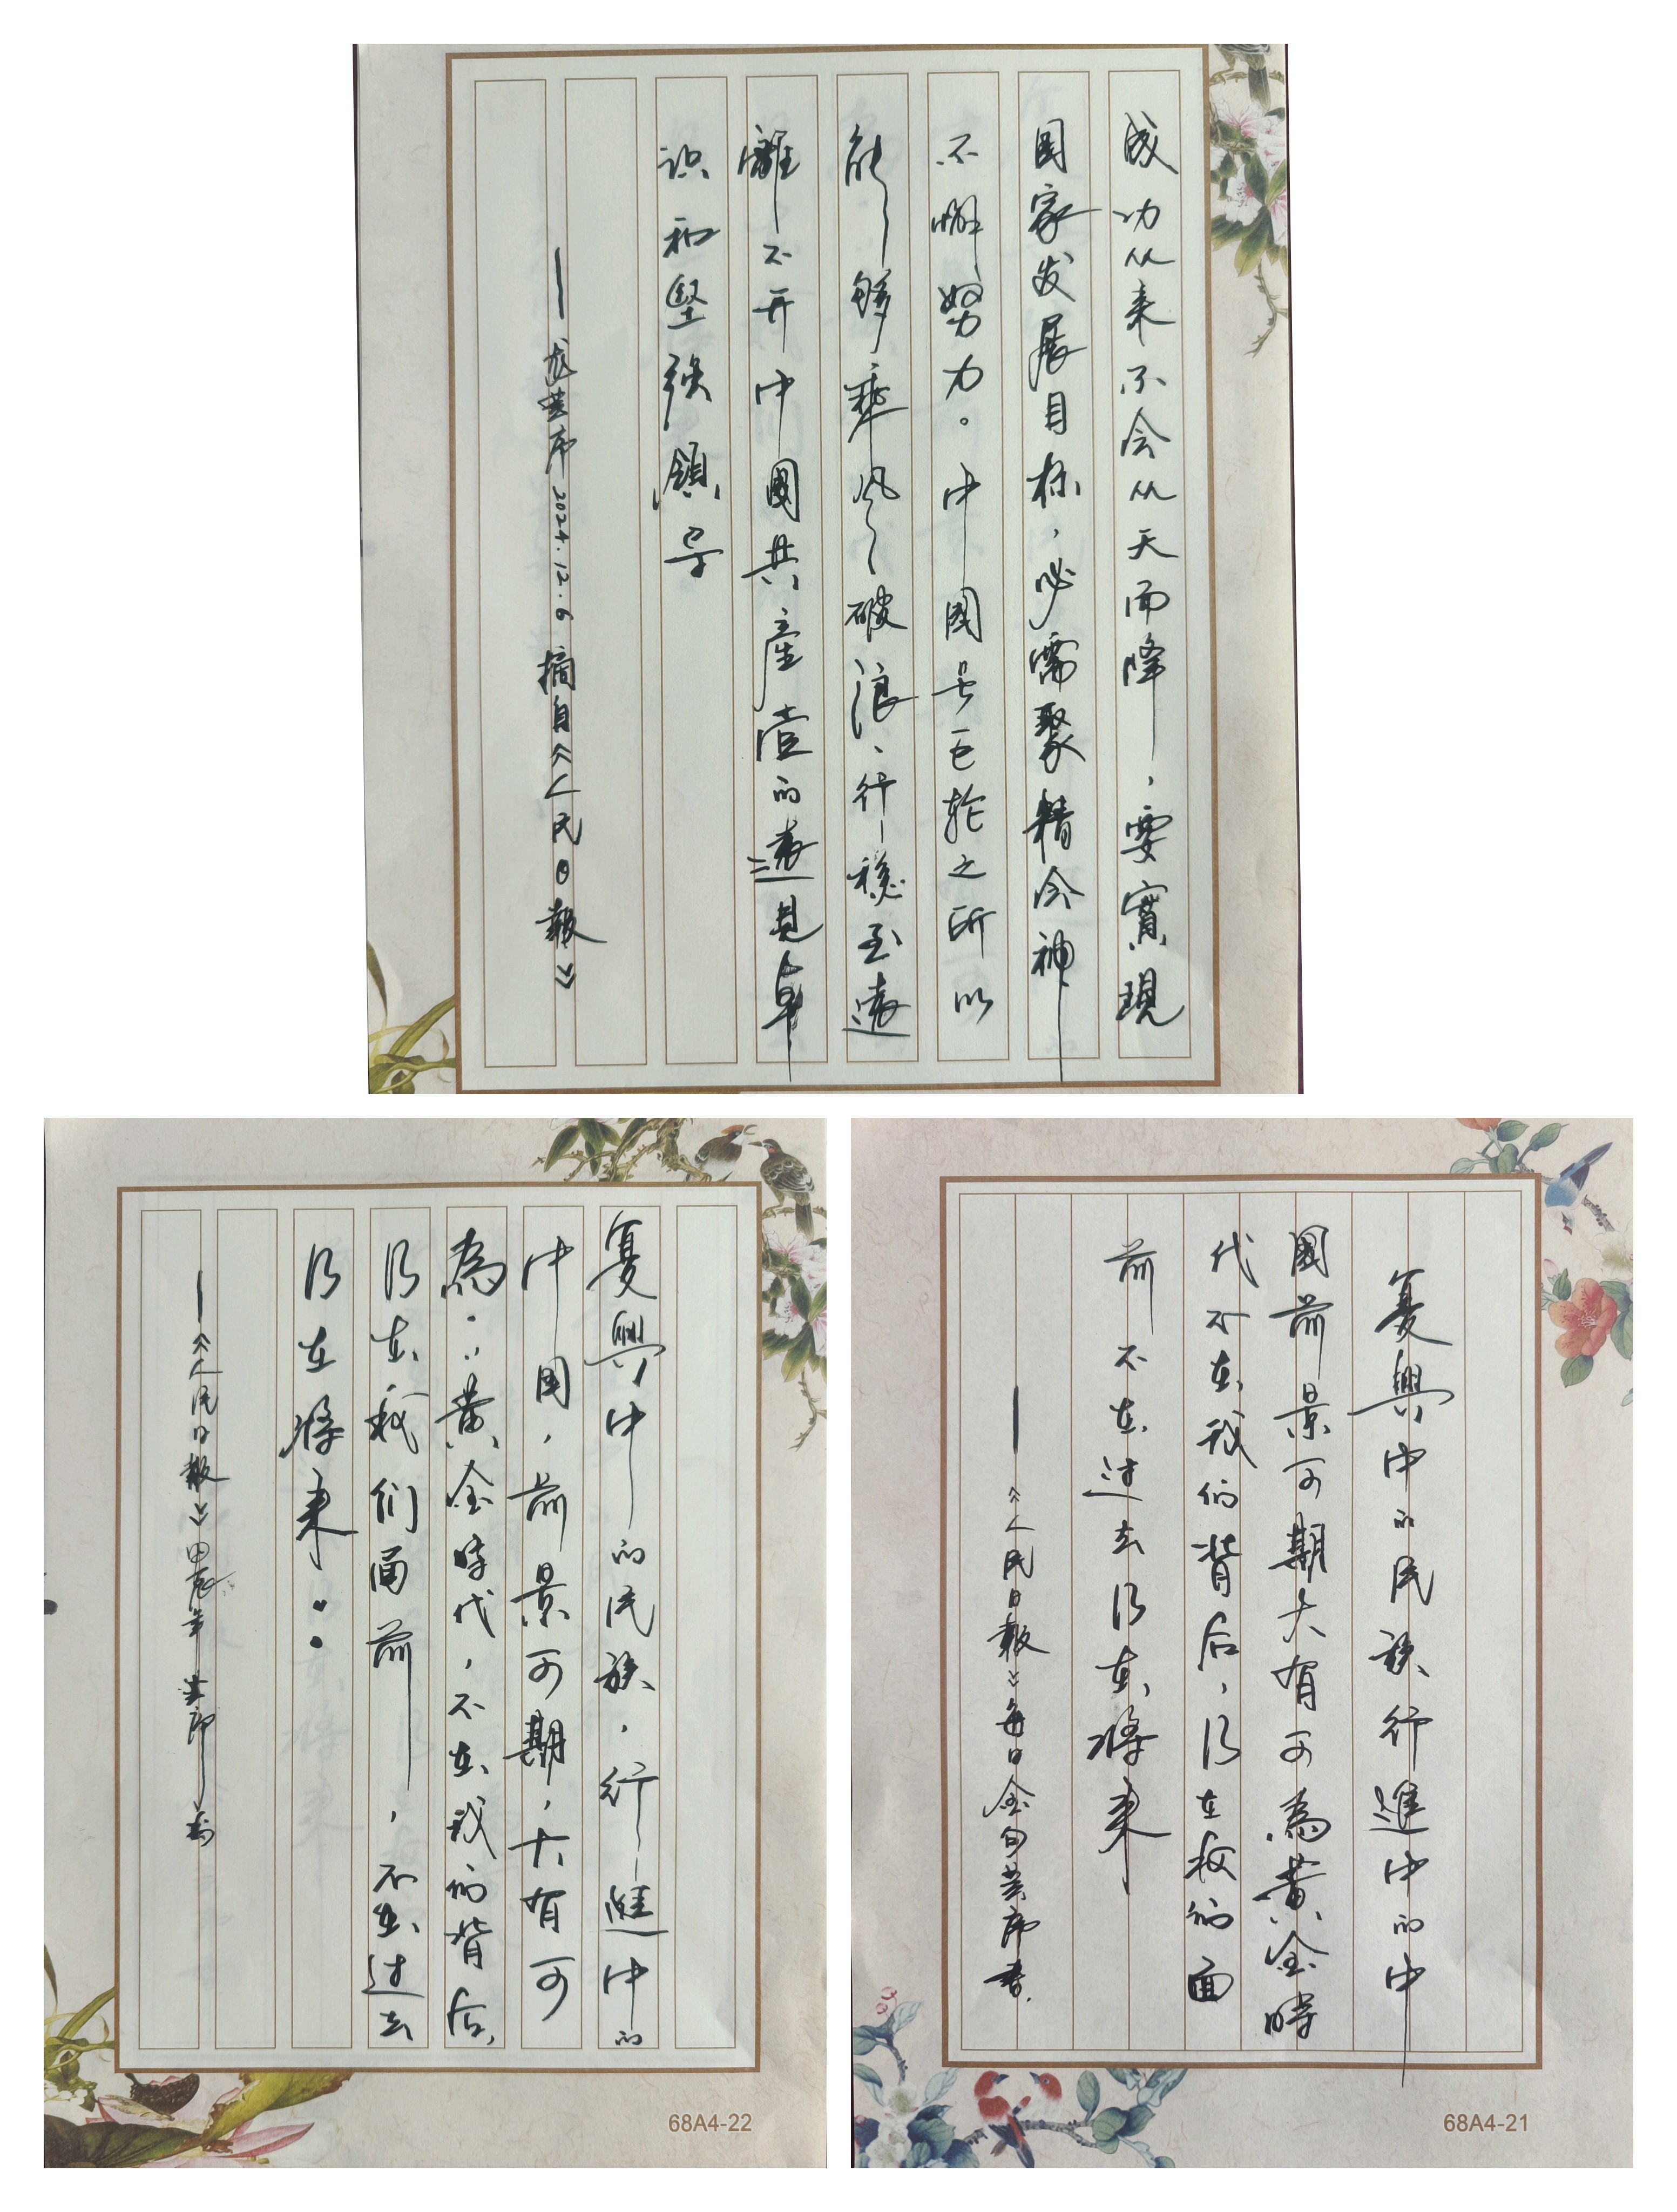 成功从来不会从天而降，要實現
国家发展目标，必需聚精会神
不懈努力。中國号巨轮之所以
能够乘风破浪、行稳至遠
離不开中國共産党的遠見卓
识和堅强領导
—龙芸序2024.12.6摘自《人民日報》
复興中的民族，行進中的
中国，前景可期，大有可
為：黄金時代，不在我们背后，
乃在我们面前，不在过去
乃在将来。
—《人民日報》甲辰年芸
复興中的民族行進中的中
國前景可期大有可為黄金時
代不在我们背后，乃在我们面
前不在过去乃在将来
—《人民日報》每日金句芸序書
68A4-22
68A4-21